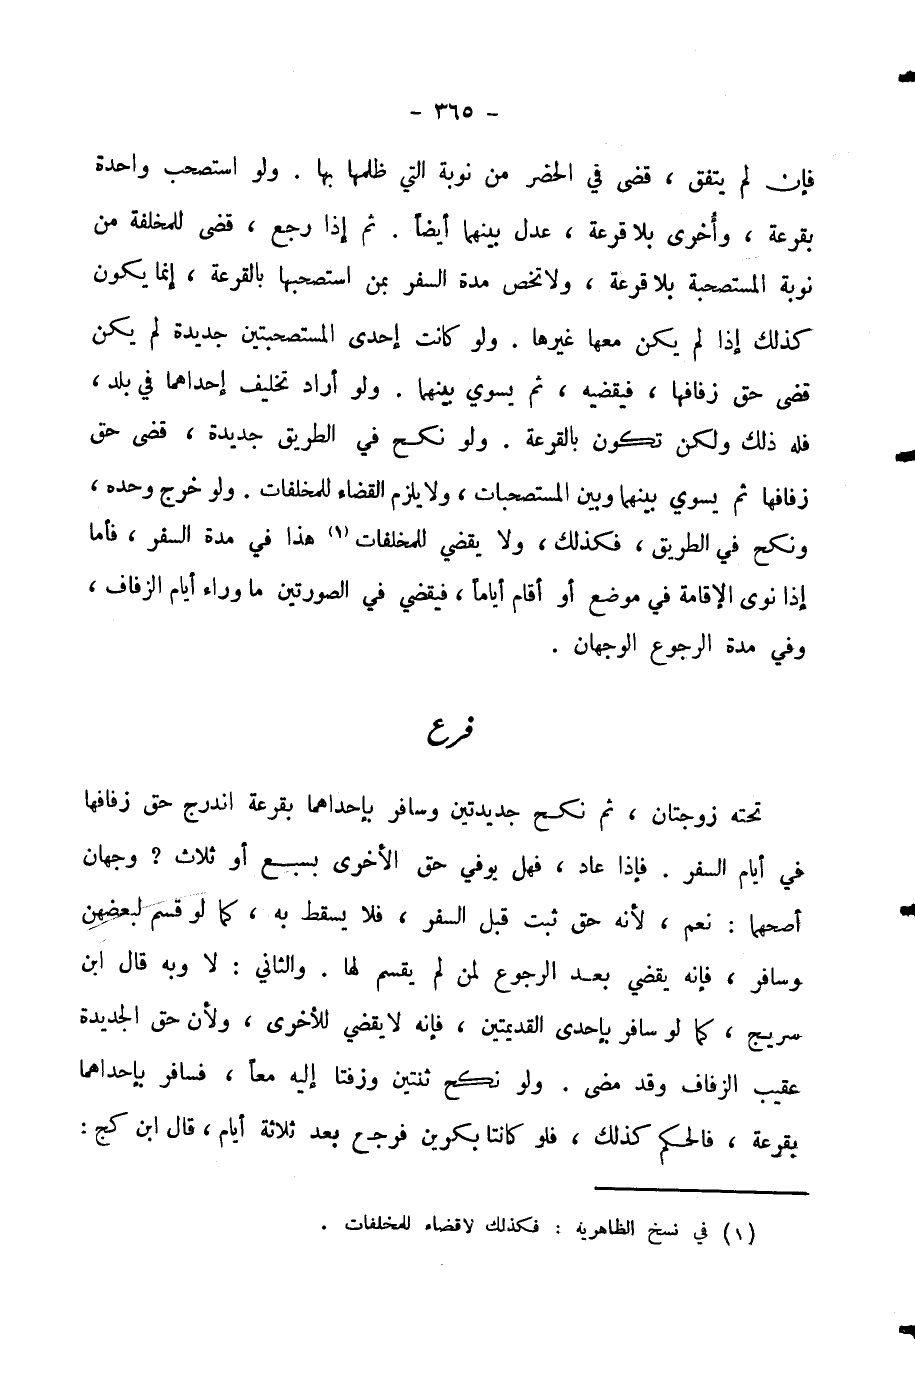 - ٣٦٥ -
فإن لم يتفق ، قضى في الحضر من نوبة التي ظلمها بها . ولو استصحب واحدة
بقرعة ، وأُخرى بلا قرعة ، عدل بينهما أيضاً . ثم إذا رجع ، قضى للمخلفة من
نوبة المستصحبة بلا قرعة ، ولا تخص مدة السفر بمن استصحبها بالقرعة ، إنما يكون
كذلك إذا لم يكن معها غيرها . ولو كانت إحدى المستصحبتين جديدة لم يكن
قضى حق زفافها ، فيقضيه ، ثم يسوي بينهما . ولو أراد تخليف إحداهما في بلد ،
فله ذلك ولكن تكون بالقرعة . ولو نكح في الطريق جديدة ، قضى حق
زفافها ثم يسوي بينهما وبين المستصحبات ، ولا يلزم القضاء للمخلفات . ولو خرج وحده ،
ونكح في الطريق ، فكذلك ، ولا يقضي للمخلفات (١) هذا في مدة السفر ، فأما
إذا نوى الإقامة في موضع أو أقام أياماً ، فيقضي في الصورتين ما وراء أيام الزفاف ،
وفي مدة الرجوع الوجهان .
فرع
تحته زوجتان ، ثم نكح جديدتين وسافر بإحداهما بقرعة اندرج حق زفافها
في أيام السفر . فإذا عاد ، فهل يوفي حق الأخرى بسبع أو ثلاث ؟ وجهان
أصحهما : نعم ، لأنه حق ثبت قبل السفر ، فلا يسقط به ، كما لو قسم لبعضهن
وسافر ، فإنه يقضي بعد الرجوع لمن لم يقسم لها . والثاني : لا وبه قال ابن
سريج ، كما لو سافر بإحدى القديمتين ، فإنه لا يقضي للأخرى ، ولأن حق الجديدة
عقيب الزفاف وقد مضى . ولو نكح ثنتين وزفتا إليه معاً ، فسافر بإحداهما
بقرعة ، فالحكم كذلك ، فلو كانتا بكرين فرجع بعد ثلاثة أيام ، قال ابن كج :
(١) في نسخ الظاهرية : فكذلك لا قضاء للمخلفات .